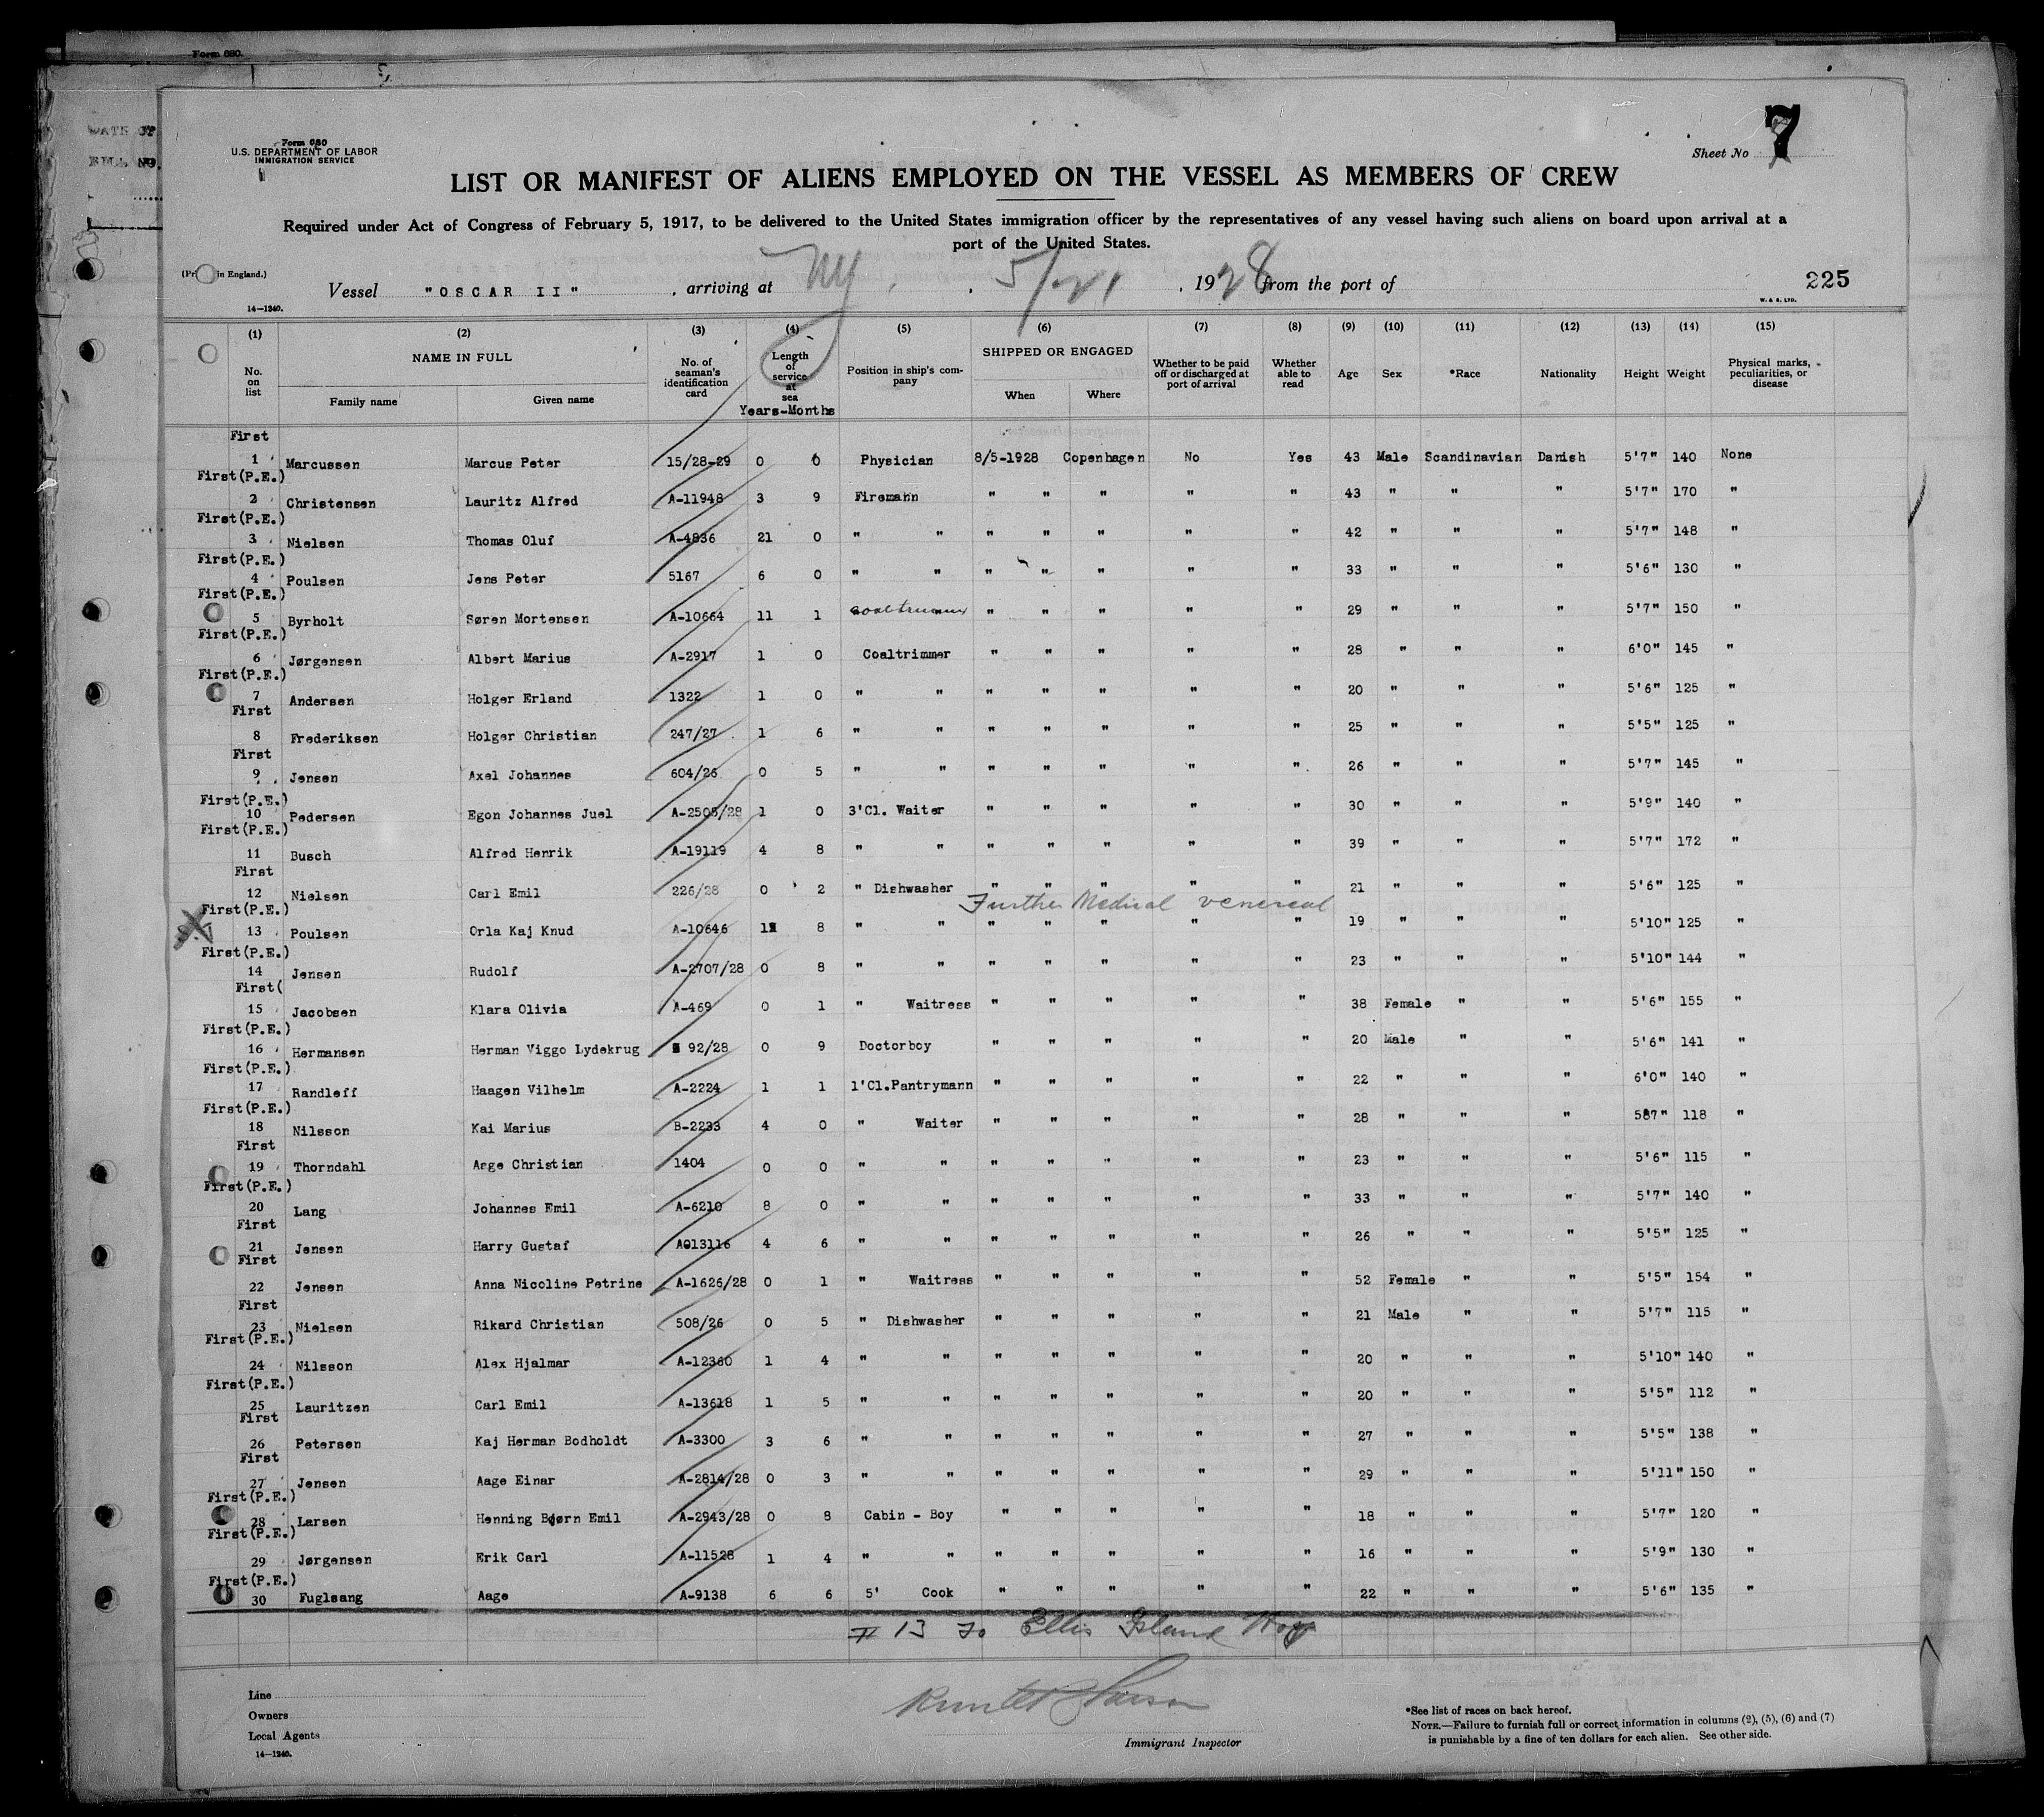 Form 680.
DATE OF
BILL NO.
Form 680
U.S. DEPARTMENT OF LABOR
IMMIGRATION SERVICE
Sheet No 7
LIST OR MANIFEST OF ALIENS EMPLOYED ON THE VESSEL AS MEMBERS OF CREW
Required under Act of Congress of February 5, 1917, to be delivered to the United States immigration officer by the representatives of any vessel having such aliens on board upon arrival at a
port of the United States.
in England.)
Vessel "OSCAR II", arriving at NY, 5/21, 1928 from the port of
225
14—1240.
W. & S. LTD.
(1) (2) (3) (4) (5) (6) (7) (8) (9) (10) (11) (12) (13) (14) (15)
No. on list NAME IN FULL Family name Given name No. of seaman's identification card Length of service at sea Years-Months Position in ship's company SHIPPED OR ENGAGED When Where Whether to be paid off or discharged at port of arrival Whether able to read Age Sex *Race Nationality Height Weight Physical marks, peculiarities, or disease
First
1 Marcussen Marcus Peter 15/28-29 0 6 Physician 8/5-1928 Copenhagen No Yes 43 Male Scandinavian Danish 5'7" 140 None
First(P.E.)
2 Christensen Lauritz Alfred A-11948 3 9 Firemann " " " " " 43 " " " 5'7" 170 "
First(P.E.)
3 Nielsen Thomas Oluf A-4836 21 0 " " " " " " " 42 " " " 5'7" 148 "
First(P.E.)
4 Poulsen Jens Peter 5167 6 0 " " " " " " " 33 " " " 5'6" 130 "
First(P.E.)
5 Byrholt Søren Mortensen A-10664 11 1 " " " " " 29 " " " 5'7" 150 "
First(P.E.)
6 Jørgensen Albert Marius A-2917 1 0 Coaltrimmer " " " " " 28 " " " 6'0" 145 "
First(P.E.)
7 Andersen Holger Erland 1322 1 0 " " " " " " " 20 " " " 5'6" 125 "
First
8 Frederiksen Holger Christian 247/27 1 6 " " " " " " " 25 " " " 5'5" 125 "
First
9 Jensen Axel Johannes 604/26 0 5 " " " " " " " 26 " " " 5'7" 145 "
First(P.E.)
10 Pedersen Egon Johannes Juel A-2505/28 1 0 3'Cl. Waiter " " " " " 30 " " " 5'9" 140 "
First(P.E.)
11 Busch Alfred Henrik A-19119 4 8 " " " " " " " 39 " " " 5'7" 172 "
First
12 Nielsen Carl Emil 226/28 0 2 " Dishwasher " " " " " 21 " " " 5'6" 125 "
Further Medical venereal
First(P.E.)
13 Poulsen Orla Kaj Knud A-10646 1 8 " " " " " " " 19 " " " 5'10" 125 "
First(P.E.)
14 Jensen Rudolf A-2707/28 0 8 " " " " " " " 23 " " " 5'10" 144 "
First(
15 Jacobsen Klara Olivia A-469 0 1 " Waitress " " " " " 38 Female " " 5'6" 155 "
First(P.E.)
16 Hermansen Herman Viggo Lydekrug 92/28 0 9 Doctorboy " " " " " 20 Male " " 5'6" 141 "
First(P.E.)
17 Randleff Haagen Vilhelm A-2224 1 1 1'Cl.Pantrymann " " " " " 22 " " " 6'0" 140 "
First(P.E.)
18 Nilsson Kai Marius B-2233 4 0 " Waiter " " " " " 28 " " " 587" 118 "
First
19 Thorndahl Aage Christian 1404 0 0 " " " " " " " 23 " " " 5'6" 115 "
First(P.E.)
20 Lang Johannes Emil A-6210 8 0 " " " " " " " 33 " " " 5'7" 140 "
First
21 Jensen Harry Gustaf A013116 4 6 " " " " " " " 26 " " " 5'5" 125 "
First
22 Jensen Anna Nicoline Petrine A-1626/28 0 1 " Waitress " " " " " 52 Female " " 5'5" 154 "
First
23 Nielsen Rikard Christian 508/26 0 5 " Dishwasher " " " " " 21 Male " " 5'7" 115 "
First(P.E.)
24 Nilsson Alex Hjalmar A-12360 1 4 " " " " " " " 20 " " " 5'10" 140 "
First(P.E.)
25 Lauritzen Carl Emil A-13618 1 5 " " " " " " " 20 " " " 5'5" 112 "
First
26 Petersen Kaj Herman Bodholdt A-3300 3 6 " " " " " " " 27 " " " 5'5" 138 "
First
27 Jensen Aage Einar A-2814/28 0 3 " " " " " " " 29 " " " 5'11" 150 "
First(P.E.)
28 Larsen Henning Bjørn Emil A-2943/28 0 8 Cabin - Boy " " " " " 18 " " " 5'7" 120 "
First(P.E.)
29 Jørgensen Erik Carl A-11528 1 4 " " " " " " " 16 " " " 5'9" 130 "
First(P.E.)
30 Fuglsang Aage A-9138 6 6 5' Cook " " " " " 22 " " " 5'6" 135 "
# 13 to Ellis Island Hosp
Line
Owners
Local Agents
14—1240.
Immigrant Inspector
*See list of races on back hereof.
NOTE.—Failure to furnish full or correct information in columns (2), (5), (6) and (7)
is punishable by a fine of ten dollars for each alien. See other side.